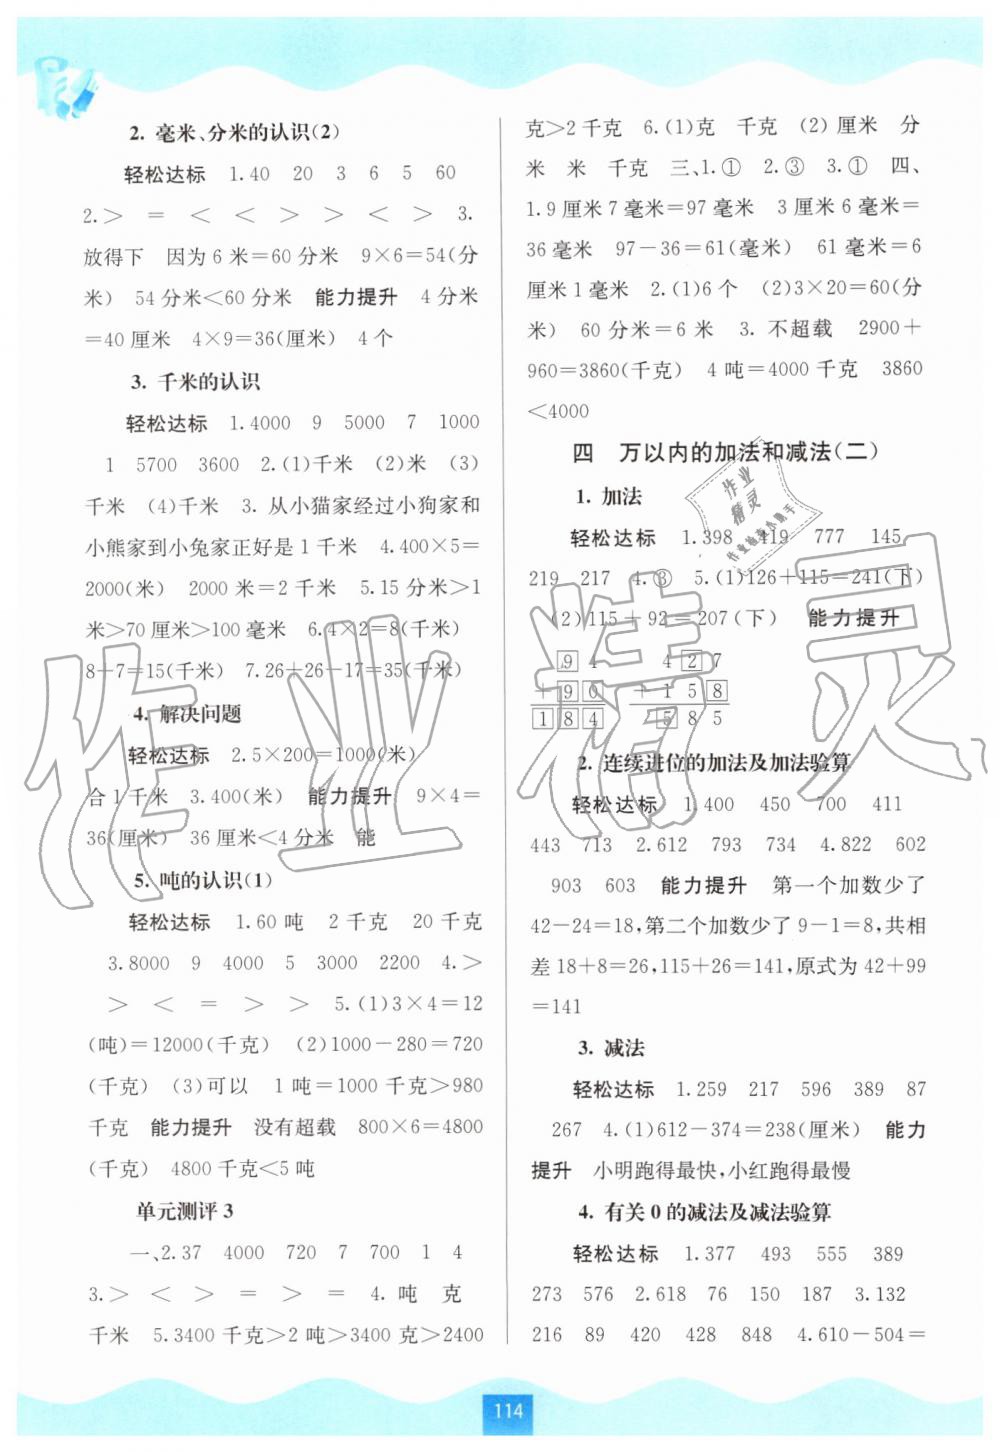 2. 毫米、分米的认识(2)
轻松达标 1.40 20 3 6 5 60
2.> = < < > > < > 3.
放得下 因为6米=60分米 9×6=54(分
米) 54分米<60分米 能力提升 4分米
=40厘米 4×9=36(厘米) 4个
3. 千米的认识
轻松达标 1.4000 9 5000 7 1000
1 5700 3600 2.(1)千米 (2)米 (3)
千米 (4)千米 3. 从小猫家经过小狗家和
小熊家到小兔家正好是1千米 4.400×5=
2000(米) 2000米=2千米 5.15分米>1
米>70厘米>100毫米 6.4×2=8(千米)
8+7=15(千米) 7.26+26-17=35(千米)
4. 解决问题
轻松达标 2.5×200=1000(米)
合1千米 3.400(米) 能力提升 9×4=
36(厘米) 36厘米<4分米 能
5. 吨的认识(1)
轻松达标 1.60吨 2千克 20千克
3.8000 9 4000 5 3000 2200 4.>
> < = > > 5.(1)3×4=12
(吨)=12000(千克) (2)1000-280=720
(千克) (3)可以 1吨=1000千克>980
千克 能力提升 没有超载 800×6=4800
(千克) 4800千克<5吨
单元测评3
一、2.37 4000 720 7 700 1 4
3.> < > = > = 4. 吨 克
千米 5.3400千克>2吨>3400克>2400
克>2千克 6.(1)克 千克 (2)厘米 分
米 米 千克 三、1.① 2.③ 3.① 四、
1.9厘米7毫米=97毫米 3厘米6毫米=
36毫米 97-36=61(毫米) 61毫米=6
厘米1毫米 2.(1)6个 (2)3×20=60(分
米) 60分米=6米 3. 不超载 2900+
960=3860(千克) 4吨=4000千克 3860
<4000
四 万以内的加法和减法(二)
1. 加法
轻松达标 1.398 419 777 145
219 217 4.③ 5.(1)126+115=241(下)
(2)115+92=207(下) 能力提升
9 4 4 2 7
+ 9 0 + 1 5 8
1 8 4 5 8 5
2. 连续进位的加法及加法验算
轻松达标 1.400 450 700 411
443 713 2.612 793 734 4.822 602
903 603 能力提升 第一个加数少了
42-24=18,第二个加数少了9-1=8,共相
差18+8=26,115+26=141,原式为42+99
=141
3. 减法
轻松达标 1.259 217 596 389 87
267 4.(1)612-374=238(厘米) 能力
提升 小明跑得最快,小红跑得最慢
4. 有关0的减法及减法验算
轻松达标 1.377 493 555 389
273 576 2.618 76 150 187 3.132
216 89 420 428 848 4.610-504=
114
作业精灵
作业精灵